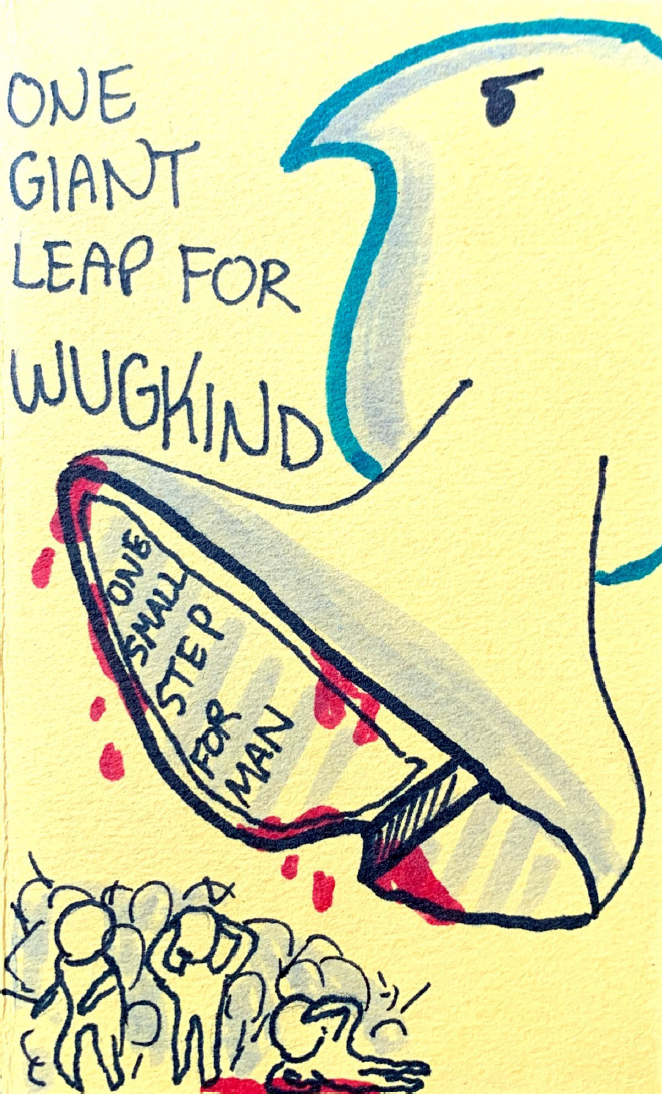 ONE
GIANT
LEAP FOR
WUGKIND
ONE
SMALL
STEP
FOR
MAN